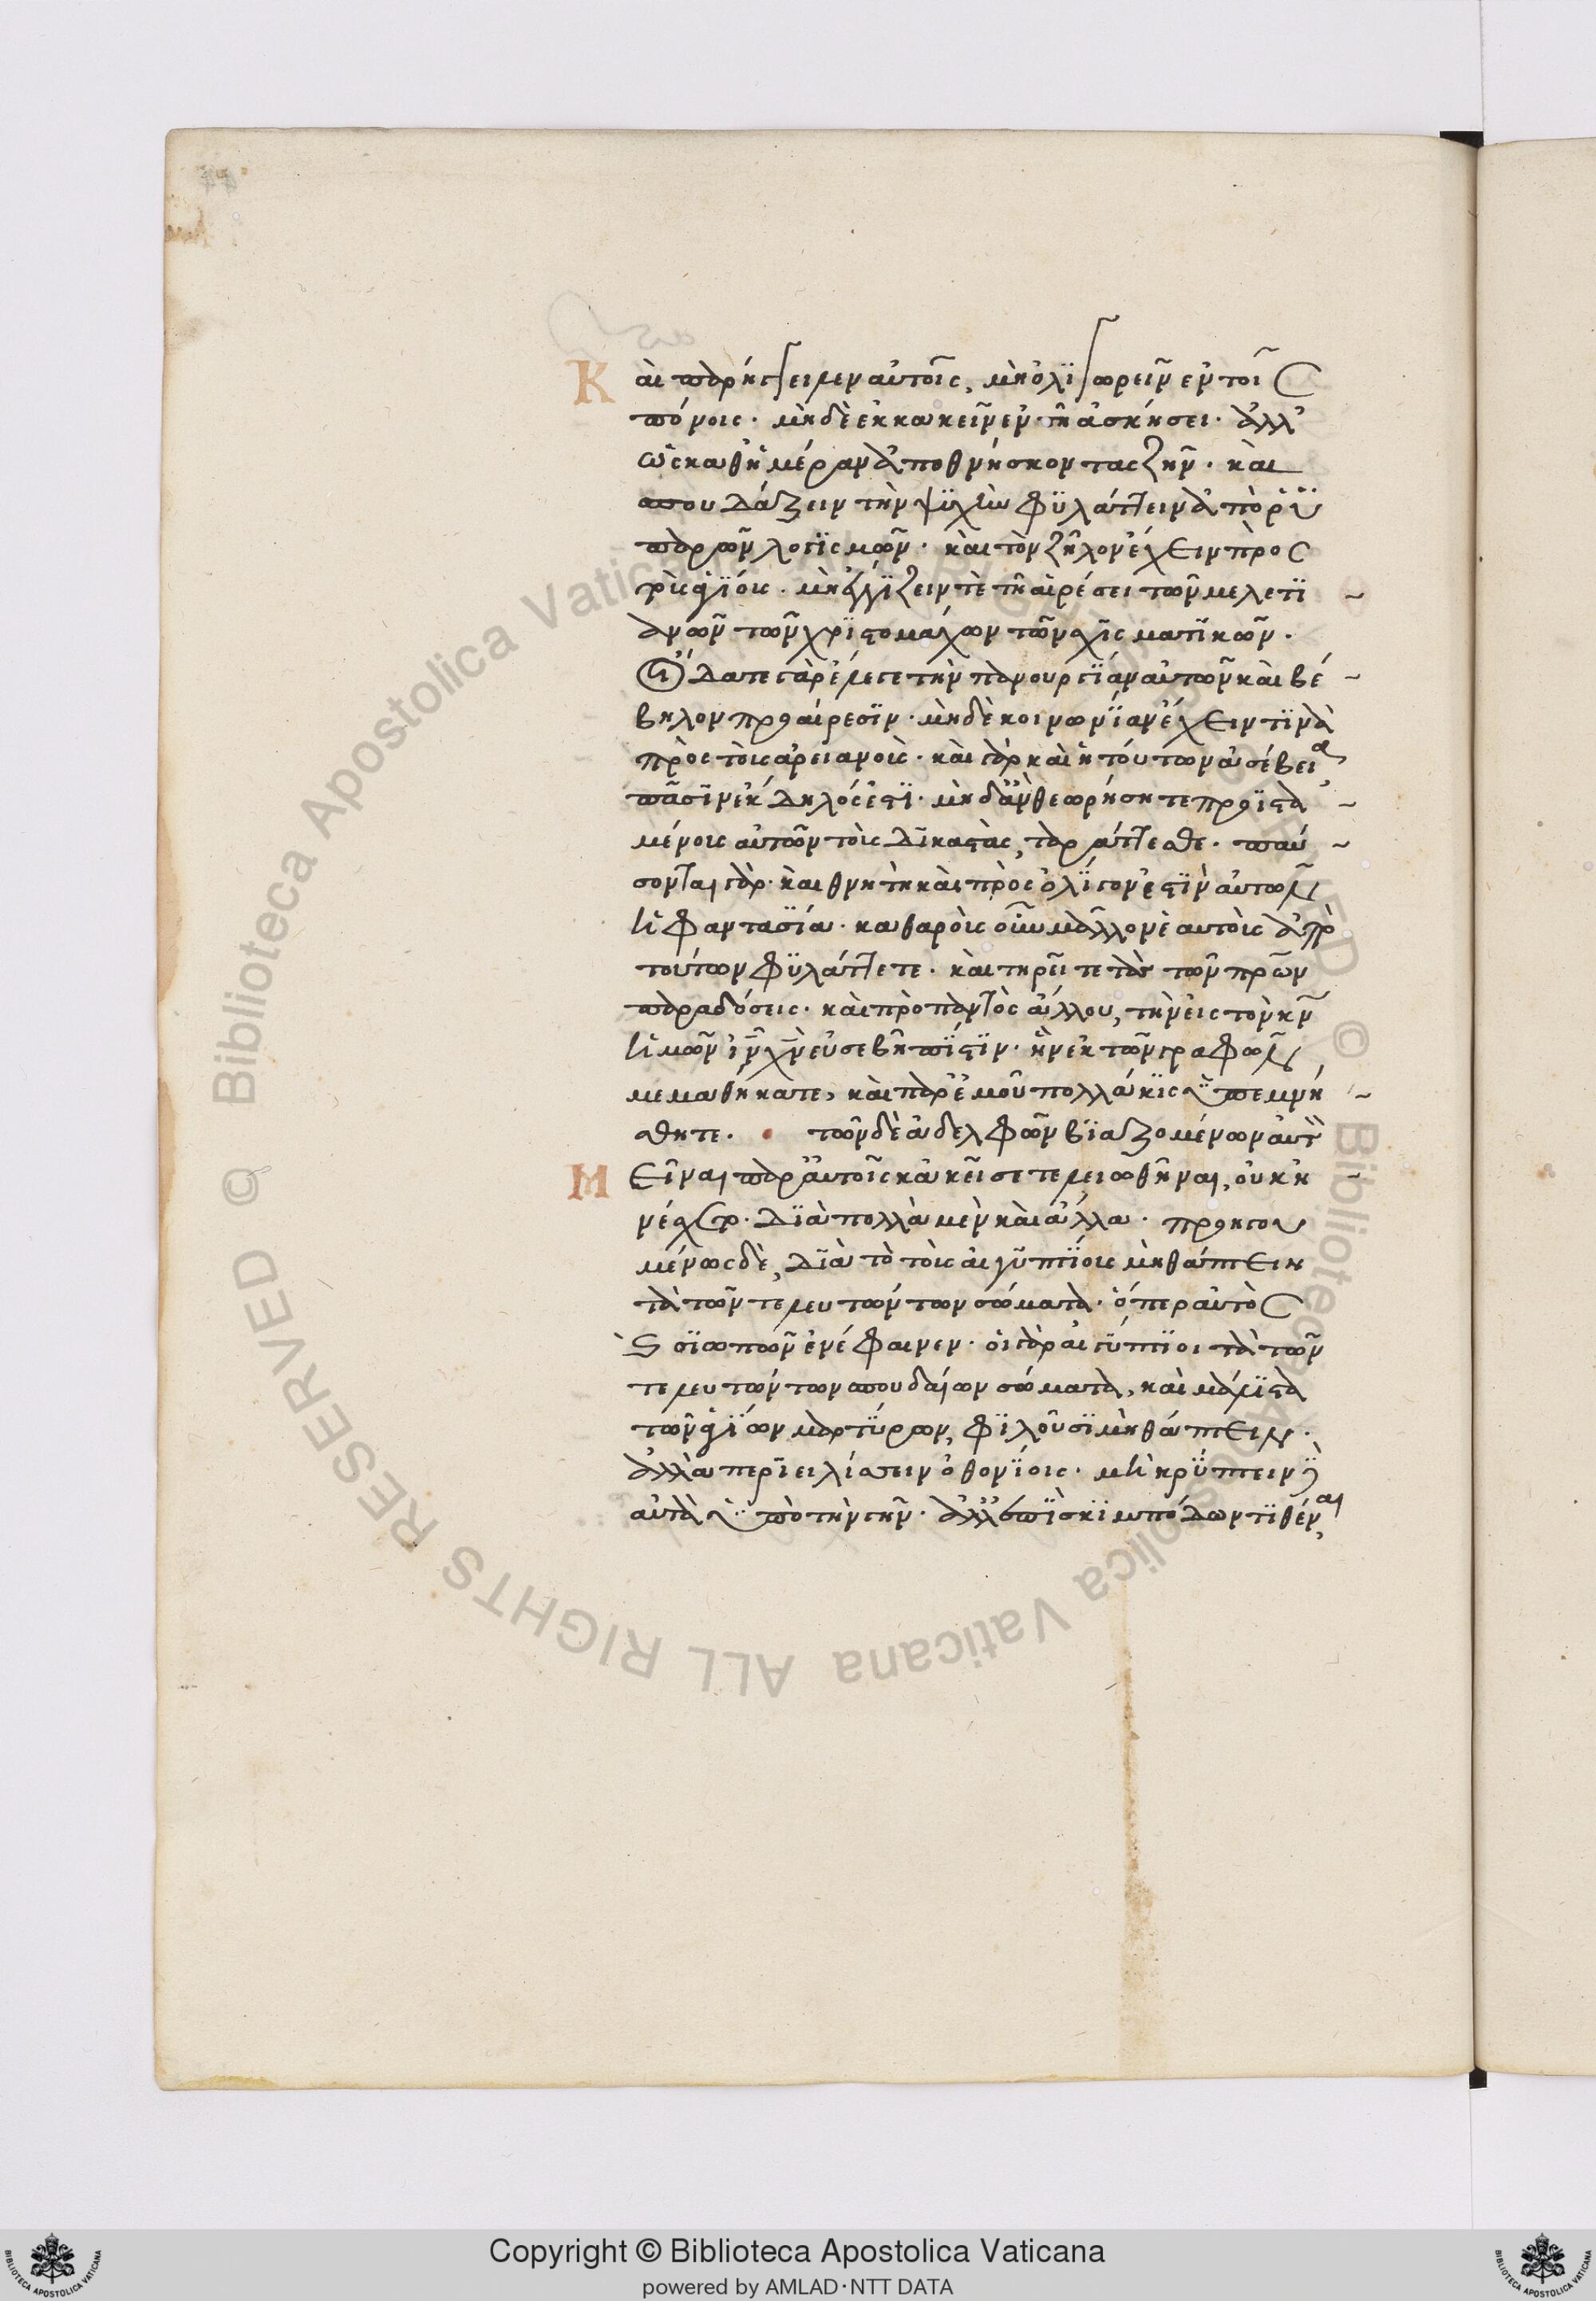 Καὶ παρήγγειλεν αὐτοῖς, μὴ ὀλϊγωρεῖν ἐν τοῖς
πόνοις. μὴ δὲ ἐκκακεῖν ἐν τῆ ἀσκήσει. ἀλλ'
ὡς καθημέραν ἀποθνήσκοντας ζῆν. καὶ
σπουδάζειν τὴν ψϋχὴν φϋλάττειν ἀπὸ ῥϋ
παρῶν λογϊσμῶν. καὶ τὸν ζῆλον ἔχειν πρὸς
τοὺς ἁγΐους. μὴ ἐγγΐζειν τὲ τῆ αἱρέσει τῶν μελετϊ
ανῶν τῶν χρϊστομάχων τῶν σχϊσματϊκῶν.
Οἴδατε γὰρ ἔλεγε τὴν πανουργΐαν αὐτῶν καὶ βέ
βηλον προαίρεσϊν. μὴ δὲ κοινωνΐαν ἔχειν τϊνὰ
πρὸς τοὺς ἀρειανούς. καὶ γὰρ καὶ ἡ τούτων ἀσέβεια
πᾶσϊν ἔκδηλός ἐστϊ. μὴ δ' ἂν θεωρήσητε προϊστα
μένους αὐτῶν τοὺς δϊκαστὰς, ταράττεσθε. παύ
σονται γὰρ. καὶ θνητὴ καὶ πρὸς ὀλΐγον ἐστϊν αὐτῶν
ἡ φαντασΐα. καθαροὺς οὖν μᾶλλον ἑαυτοὺς ἀπὸ
τούτων φϋλάττετε. καὶ τηρεῖτε τὰς τῶν πρων
παραδόσεις. καὶ πρὸ παντὸς ἄλλου, τὴν εἰς τὸν κν
ἡμῶν ιν χν εὐσεβῆ πΐστϊν. ἣν ἐκ τῶν γραφῶν
μεμαθήκατε, καὶ παρ' ἐμοῦ πολλάκϊς ϋπεμνή
σθητε. τῶν δὲ ἀδελφῶν βϊαζομένων αὐτὸν
Μεῖναι παρ' αὐτοῖς κἀκεῖσε τελειωθῆναι, οὐκ ἠ
νέσχετο. δϊὰ πολλὰ μὲν καὶ ἄλλα. προηγου
μένως δὲ, δϊὰ τὸ τοὺς αἰγϋπτΐους μὴ θάπτειν
τὰ τῶν τελευτώντων σώματα. ὅπερ αὐτὸς
καὶ σϊωπῶν ἐνέφαινεν. οἱ γὰρ αἰγΰπτϊοι τὰ τῶν
τελευτώντων σπουδαίων σώματα, καὶ μάλϊστα
τῶν ἁγΐων μαρτΰρων, φϊλοῦσϊ μὴ θάπτειν.
ἀλλὰ περϊειλίσσειν ὀθονΐοις. μὴ κρΰπτειν δὲ
αὐτὰ ϋπὸ τὴν γῆν. ἀλλ' ἐπὶ σκϊμπόδων τϊθέναι